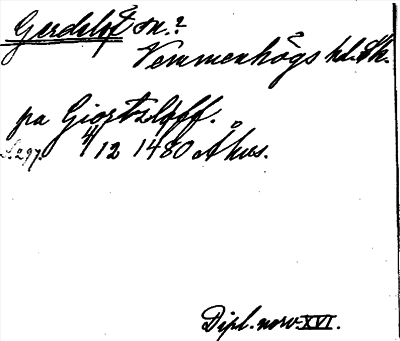 Gerdslöf sn.?
Vemmenhögs hd. Sk.
pa Giortzløff.
S. 297. 4/12 1480 Åhus.
Dipl. norv. XVI.